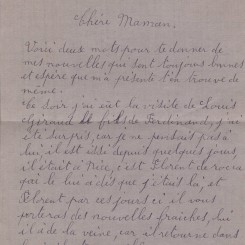 Chère Maman.
Voici deux mots pour te donner de
mes nouvelles qui sont toujours bonnes
et espère que m'a présente t'en trouve de
même.
Ce soir j'ai eût la visite de Louis
Giraud le fils de Ferdinand, j'ai
été surpris, car je ne pensais pas à
lui, il est ici depuis quelques jours,
il était à Nice, c'est Florent de
qui lui à dis que j'étais là, et
Florent, par ces jours ci il vous
portera des nouvelles fraîches, lui
il à de la veine, car il retourne dans